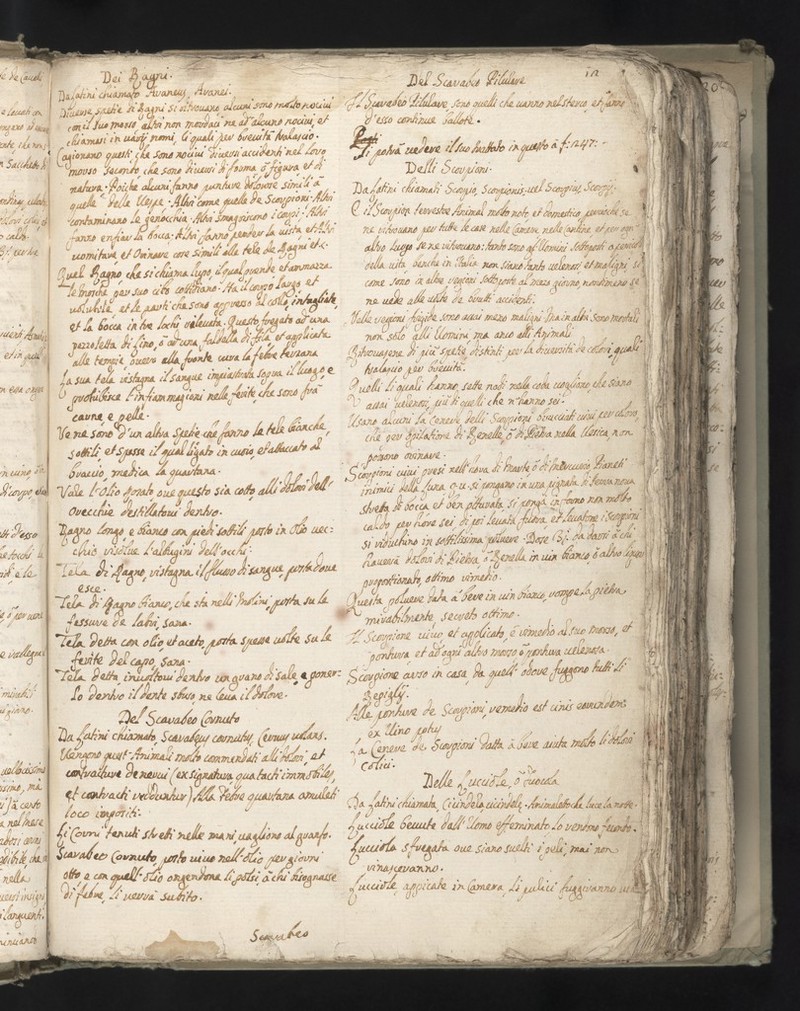 Dei Ragni.
Da Latini chiamato Araneus, Aranei.
Diverse spetie di Ragni si ritrovano, alcuni sono molto nocivi
con il suo morso, altri non mordaci ne ad alcuno nocivi, et
chiamasi in varij nomi, li quali per brevità tralascio.
Cagionano questi che sono nocivi diversi accidenti nel loro
morso secondo, che sono diversi di forma ò figura et di
natura. Poiche alcuni fanno punture dolorose simili à
quelle delle Vespe. Altri come quelle de Scorpioni. Altri
contaminano le genochia. Altri smagriscono i corpi. Altri
fanno enfiar la bocca. Altri fanno perder la vista, et Altri
vomitare et Orinare cose simili alle tele de Ragni etc.
Quel Ragno che si chiama lupo, il qual prende et ammazza
le mosche per suo cibo cottidiano. Ha il corpo largo et
volubile, et le parti che sono appresso al collo, intagliate,
et la bocca in tre lochi rilevata. Questo fregato ad una
pezzoletta di lino, ò ad una faldella di fila et applicata
alle tempie, overo alla fronte cura la febre terzana
La sua tela ristagna il sangue impiastrata sopra il luogo, e
prohibisce l'infiammagioni nelle ferite, che sono frà
carne, e pelle.
Ve ne sono d'un altra spetie che fanno le tele bianche,
sottili, et spesse il qual ligato in cuoio, et attaccato al
braccio, medica la quartana.
Vale l'Olio rosato ove questo sia cotto, alli dolori dell'
Orecchie destillatovi dentro.
Ragno longo, e bianco con piedi sottili posto in Olio vec:
chio risolve l'albugini dell'occhi.
Tela di Ragno, ristagna il flusso di sangue, posta dove
esce.
Tela di Ragno bianco, che stà nelli Molini, posta su le
fessure de labri, sana.
Tela detta con olio, et aceto, posta spesse volte su le
ferite del capo, sana.
Tela detta, involtovi dentro un grano di sale, e poner:
lo dentro il dente sbuso ne leva il dolore.
Del Scarabeo Cornuto
Da Latini chiamato, Scarabeus cornutus, Cervus volans.
Vengono quest'Animali molto commendati alli dolori, et
contratture de nervi (ex signatura qua tacti immobiles,
et contracti redduntur) Alla Febre quartana amuleti
loco impositi.
Li Corni tenuti stretti nelle mani, vagliono al granfo.
Scarabeo Cornuto, posto vivo nell'olio per giorni
otto e con quell'olio ongendone li polsi, à chi bisognasse
di febre, li verrà subito.
Scarabeo
Del Scarabeo Pilulare
Il Scarabeo Pilulare, sono quelli che vanno nel sterco, et fanno
d'esso continue ballote.
Si potrà vedere il suo trattato in questo à f: 1247.
Delli Scorpioni.
Da Latini chiamati Scorpio, Scorpionis, vel Scorpius, Scorpij.
È il Scorpion terrestre Animal molto noto, et domestico, percioche se
ne ritrovano per tutte le case nelle camere nelle cantine et per ogn'
altro luogo se ne ritrovano: tanto sono gl'Uomini sottoposti à pericoli
della vita benche in Italia non siano tanto velenosi et maligni, sì
come sono in altre regioni sottoposte al mezo giorno, nondimeno se
ne vede alle volte de brutti accidenti.
Nelle regioni frigide sono assai meno maligni. Ma in altri sono mortali
non solo alli Uomini, ma anco alli Animali.
Ritrovagene di più spetie distinti per la diversità de colori, quali
tralascio per brevità.
Quelli li quali hanno, sette nodi nella coda vogliono, che siano
assai velenosi, più di quelli che n'hanno sei.
Usano alcuni la Cenere delli Scorpioni abbrucciati vivi per coloro,
che per opilatione di Renelle, ò di Pietra nella Vesica non
possono orinare.
Scorpioni vivi presi nell'hora di Marte ò di Mercurio Pianeti
inimici della Luna, si pongano in una pignata di terra nova
stretta di bocca et ben otturata si ponga in forno non molto
caldo per hore sei, di poi levata, et levatone i Scorpioni
si riduchino in sottilissima polvere. Dose da darsi à chi
haverà dolori di Pietra, ò Renella in vin bianco, ò altro liquore
proportionato, ottimo rimedio.
Questa polvere data à bere in vin bianco, rompe la pietra
mirabilmente, secreto ottimo.
Il Scorpione vivo, et applicato, è rimedio al suo morso, et
pontura, et ad ogni altro morso ò pontura velenosa.
Scorpione arso in casa, da quell'odore fuggono tutti li
Alle ponture de Scorpioni, remedio est cinis eorundem
ex Vino potus
La Cenere de Scorpioni datta à bere aiuta molto li dolori
colici.
Delle Lucciole,
Da Latini chiamata, Cicindela, cicindelę. Animaletto che luce la notte.
Lucciole bevute dall'Uomo effeminato lo rendono
Lucciola sfregata ove siano svelti i peli, mai non
rinasceranno.
Lucciole, appicate in Camera, li pulici fuggiranno